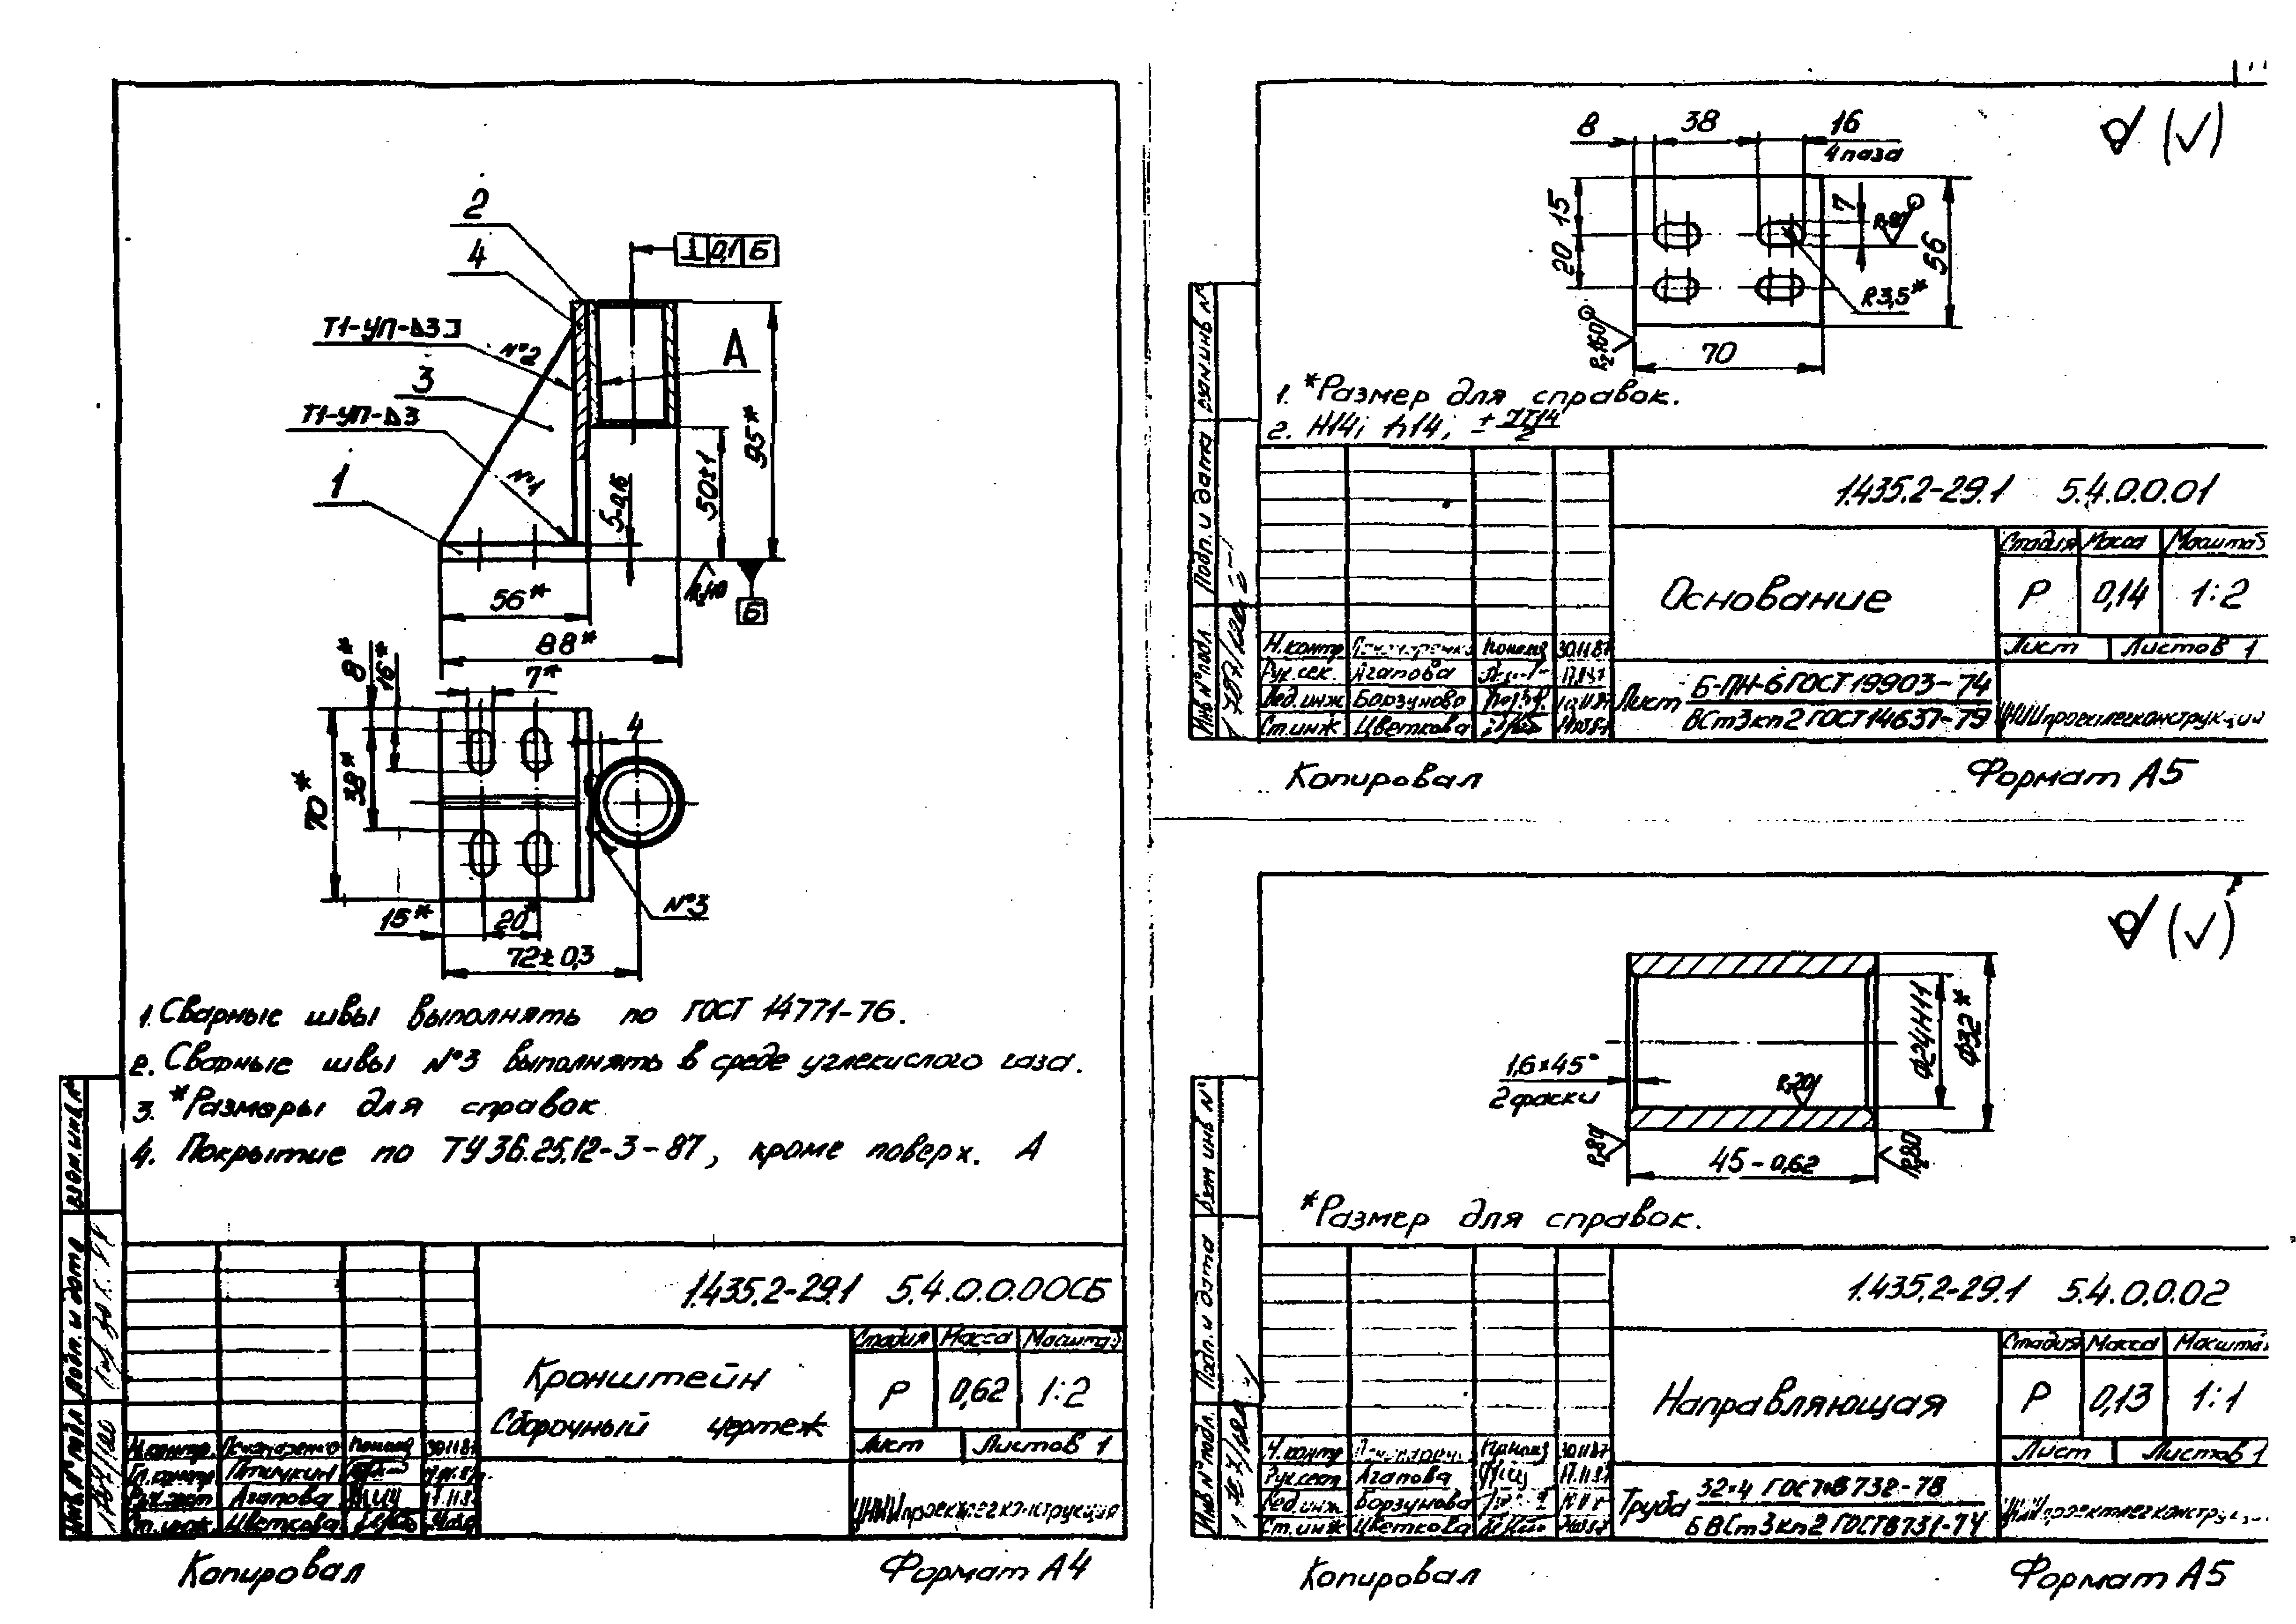 2
4
⊥ 0,1 Б
Т1-УП-⊿3
№2
А
3
Т1-УП-⊿3
1
№1
95*
50±1
Б
56*
88*
8*
16*
7*
4
70*
38*
15*
20*
№3
72±0,3
1. Сварные швы выполнять по ГОСТ 14771-76.
2. Сварные швы №3 выполнять в среде углекислого газа.
3. *Размеры для справок
4. Покрытие по ТУ 36.25.12-3-87, кроме поверх. А
Взам.инв.№
Подп. и дата
Инв.№ подл
1.435.2-29.1 5.4.0.0.00СБ
Кронштейн
Сборочный чертеж
Стадия Масса Масштаб
Р 0,62 1:2
Лист Листов 1
Н.контр. 30.11.87
Гл.контр Птичкин
Агапова
Ст.инж. Цветкова
ЦНИИпроектлегконструкция
Копировал Формат А4
8 38 16
4 паза
15
20
7
Rz80
56
R3,5*
Rz160
70
1. *Размер для справок.
2. Н14; h14; ± IT14/2
Взам.инв №
Подп. и дата
Инв.№ подл
1.435.2-29.1 5.4.0.0.01
Основание
Стадия Масса Масштаб
Р 0,14 1:2
Лист Листов 1
Н.контр 30.11.87
Рук.сек. Агапова
Вед.инж Борзунова
Ст.инж Цветкова
Лист Б-ПН-6 ГОСТ 19903-74
ВСт3кп2 ГОСТ 14637-79
ЦНИИпроектлегконструкция
Копировал Формат А5
1,6×45°
2 фаски
Rz20
Ф24Н11
Ф32*
Rz80
45-0,62
Rz80
*Размер для справок.
Взам инв №
Подп. и дата
Инв.№ подл.
1.435.2-29.1 5.4.0.0.02
Направляющая
Стадия Масса Масштаб
Р 0,13 1:1
Лист Листов 1
Н.контр 30.11.87
Агапова
Вед.инж Борзунова
Ст.инж Цветкова
Труба 32×4 ГОСТ 8732-78
Б ВСт3кп2 ГОСТ 8731-74
ЦНИИпроектлегконструкция
Копировал Формат А5